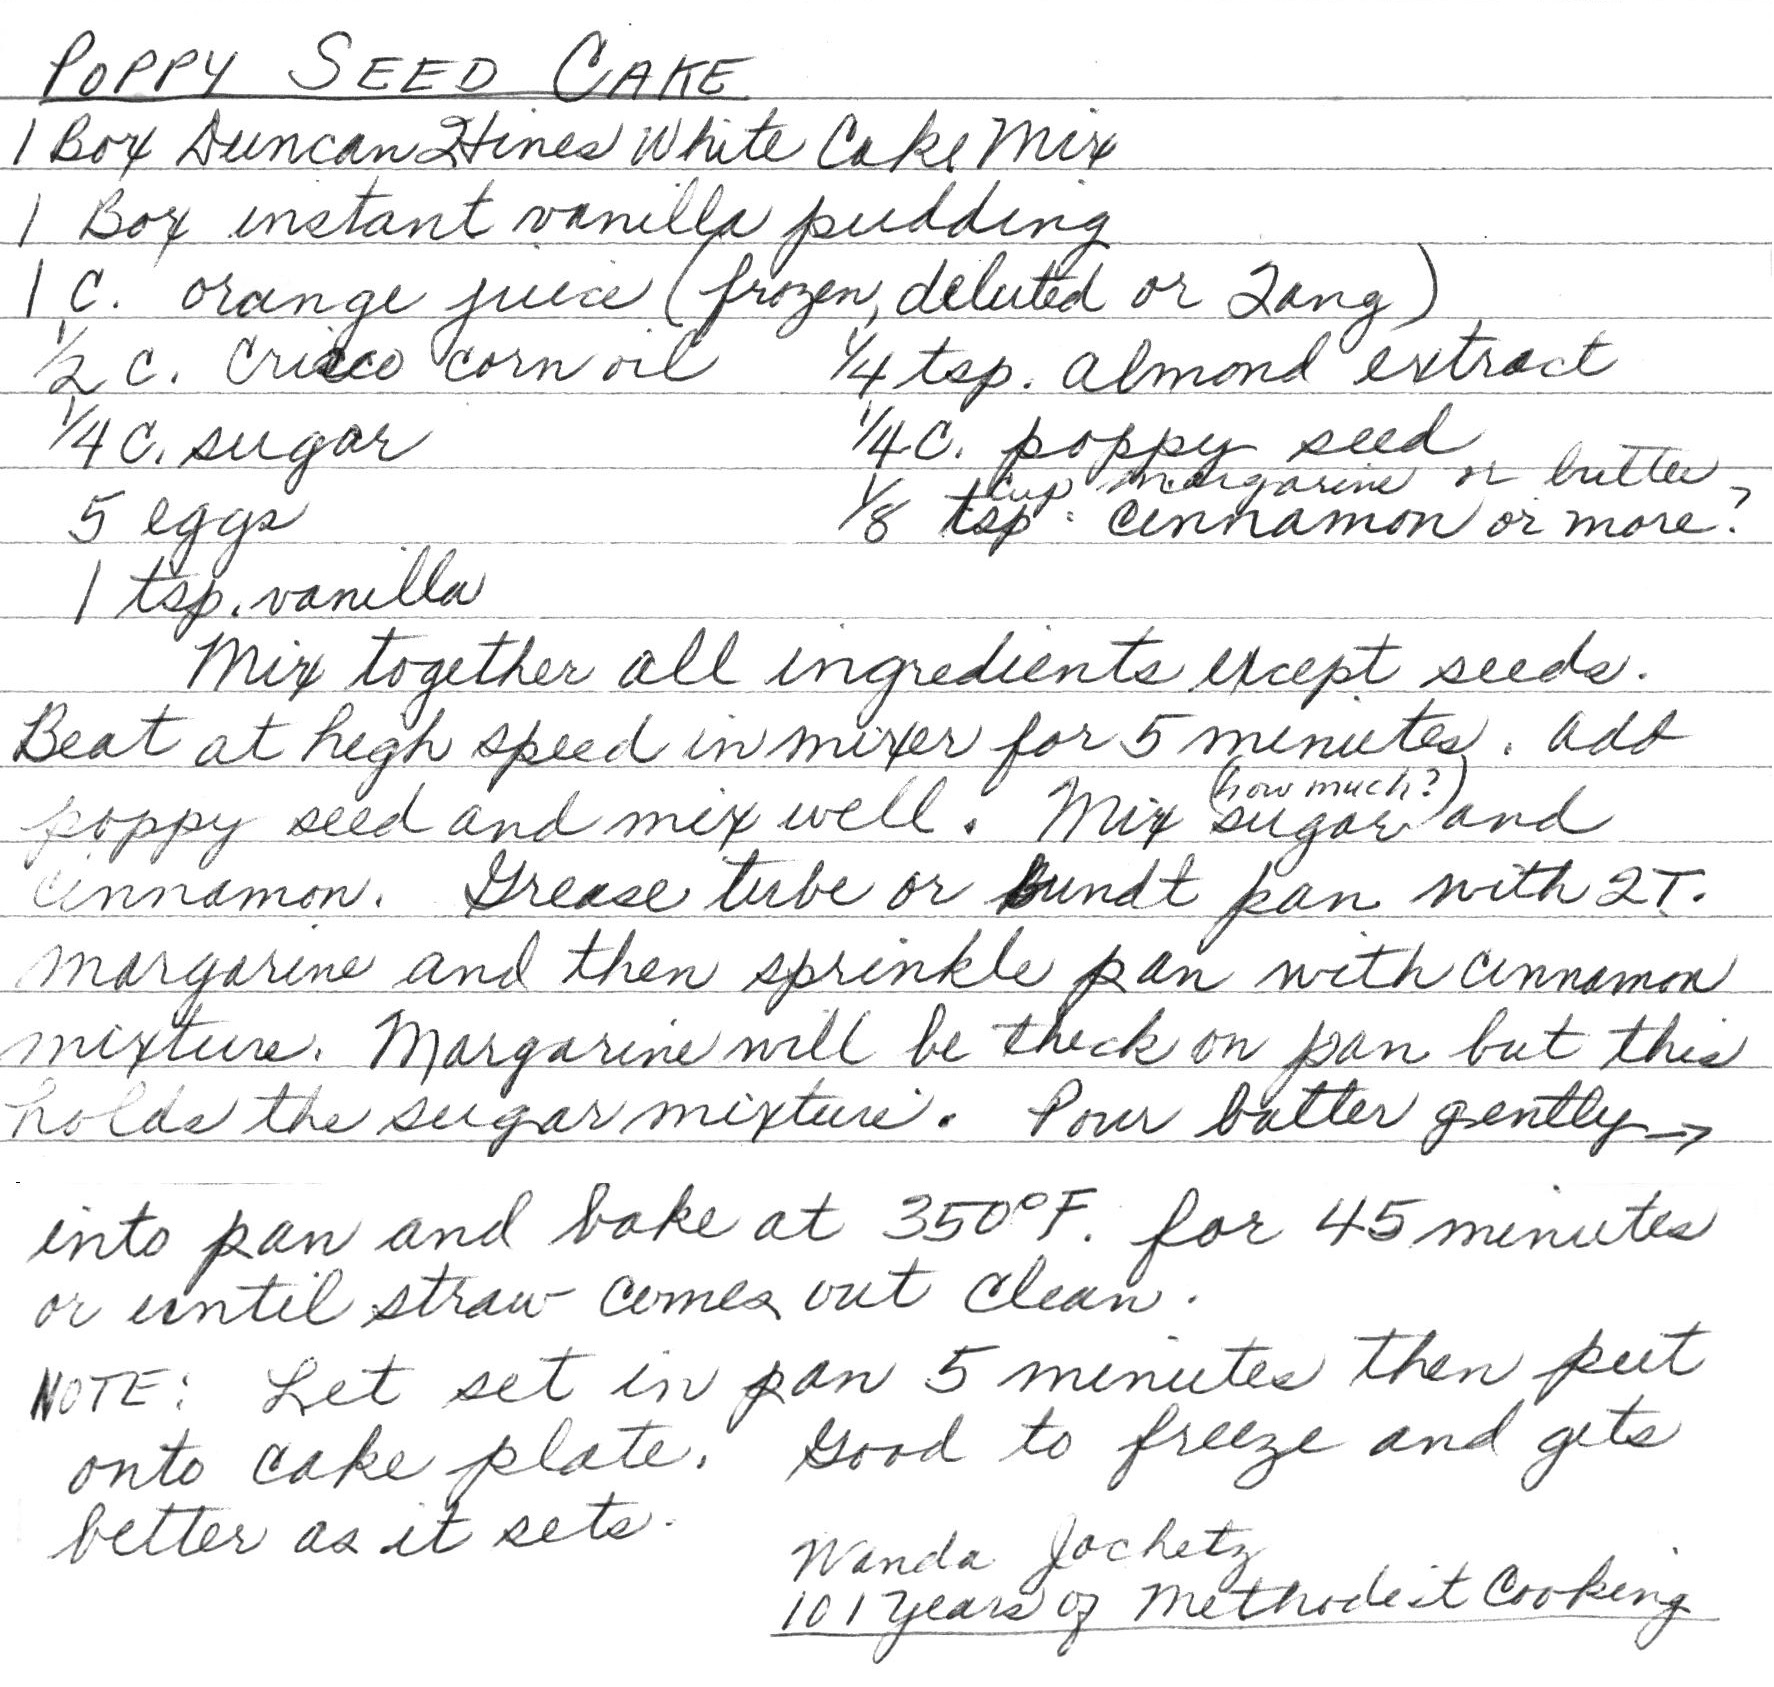 POPPY SEED CAKE
1 Box Duncan Hines White Cake Mix
1 Box instant vanilla pudding
1 C. orange juice (frozen, deluted or Tang)
1/2 C. Crisco corn oil 1/4 tsp. almond extract
1/4 C. sugar 1/4 C. poppy seed
cup margarine or butter
5 eggs 1/8 tsp. cinnamon or more?
1 tsp. vanilla
Mix together all ingredients except seeds.
Beat at high speed in mixer for 5 minutes. Add
(how much?)
poppy seed and mix well. Mix sugar and
cinnamon. Grease tube or Bundt pan with 2T.
margarine and then sprinkle pan with cinnamon
mixture. Margarine will be thick on pan but this
holds the sugar mixture. Pour batter gently →
into pan and bake at 350°F. for 45 minutes
or until straw comes out clean.
NOTE: Let set in pan 5 minutes then put
onto cake plate. Good to freeze and gets
better as it sets.
Wanda Jochetz
101 Years of Methodist Cooking